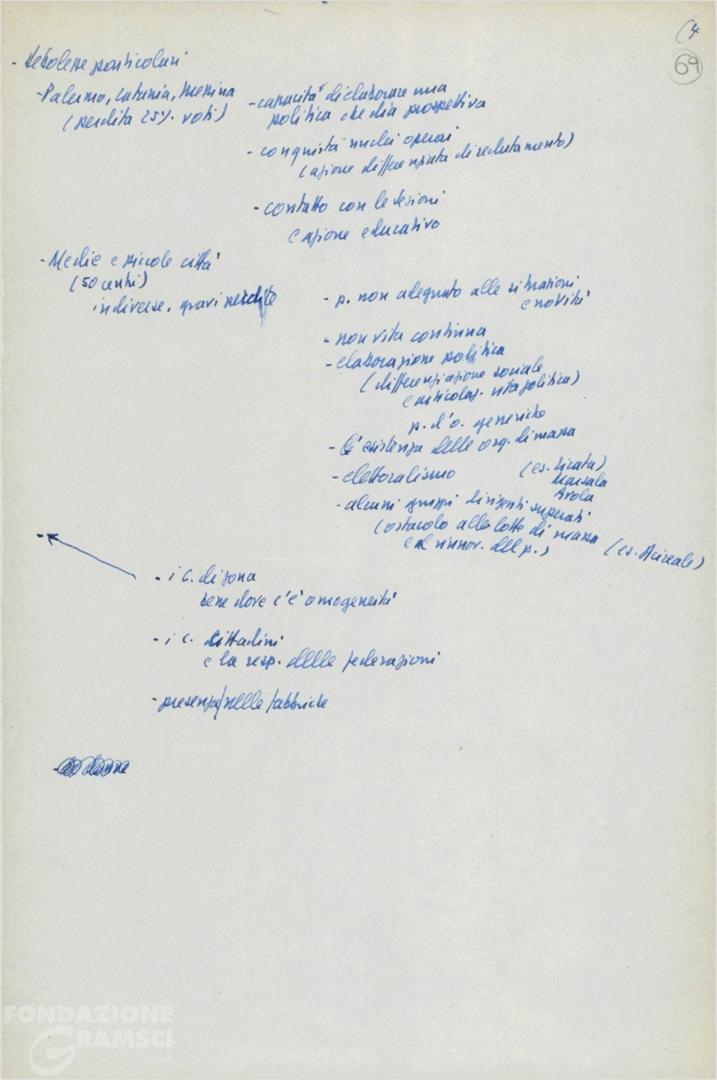 (4
69
- debolezze particolari
- Palermo, Catania, Messina
(perdita 25% voti)
- capacità di elaborare una
politica che dia prospettiva
- conquista nuclei operai
(azione differenziata di reclutamento)
- contatto con le sezioni
e azione educativa
- Medie e piccole città
(50 centri)
in diverse, gravi perdite
- p. non adeguato alle situazioni
e novità
- non vita continua
- elaborazione politica
(differenziazione sociale
e articolaz. vita politica)
p. d'o. generiche
- l'esistenza delle org. di massa
- elettoralismo (es. Licata)
Marsala
Avola
- alcuni gruppi dirigenti superati
(ostacolo alle lotte di massa
e al rinnov. del p.) (es. Acireale)
-
- i C. di zona
bene dove c'è omogeneità
- i C. cittadini
e la resp. delle federazioni
- presenza nelle fabbriche
FONDAZIONE
GRAMSCI
onlus